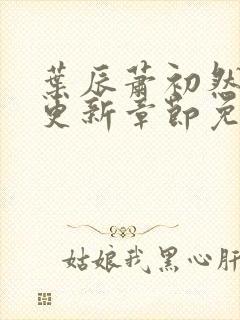 葉辰蕭初然
更新章節免
姑娘我黑心肝